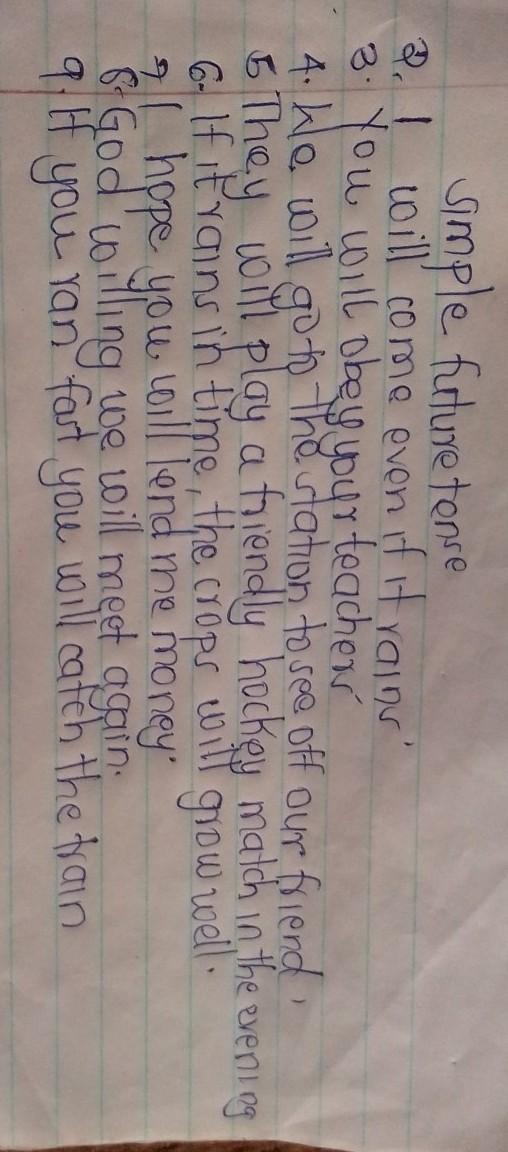 simple future tense
2. I will come even if it rains.
3. You will obey your teachers
4. We will go to the station to see off our friend.
5 They will play a friendly hockey match in the evening
6. If it rains in time, the crops will grow well.
7 I hope you will lend me money.
8. God willing we will meet again.
9. If you ran fast you will catch the train